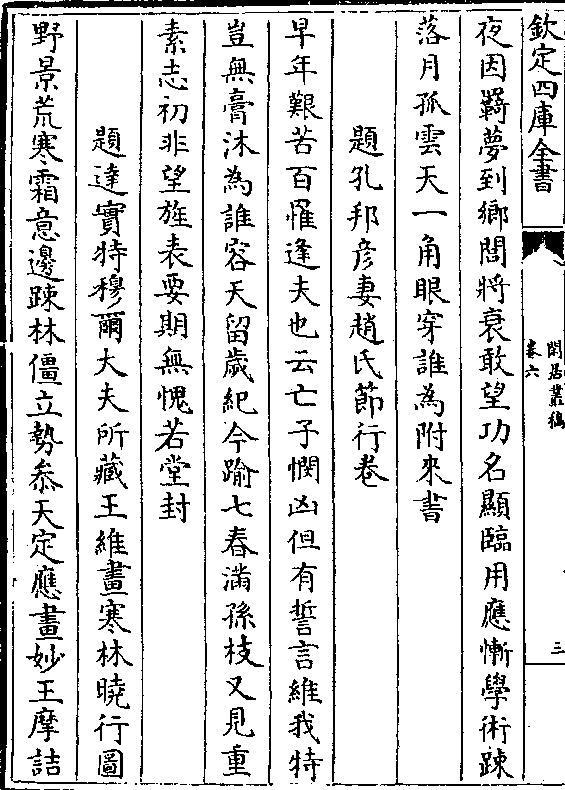 欽定四庫全書
閑居叢稿
卷六
三
夜因羇夢到鄉閭將衰敢望功名顯臨用應慚學術踈
落月孤雲天一角眼穿誰為附來書
題孔邦彦妻趙氏節行卷
早年艱苦百罹逢夫也云亡子憫凶但有誓言維我特
豈無膏沐為誰容天留歲紀今踰七春滿孫枝又見重
素志初非望旌表要期無愧若堂封
題達實特穆爾大夫所藏王維畫寒林曉行圖
野景荒寒霜意邊踈林僵立勢叅天定應畫妙王摩詰